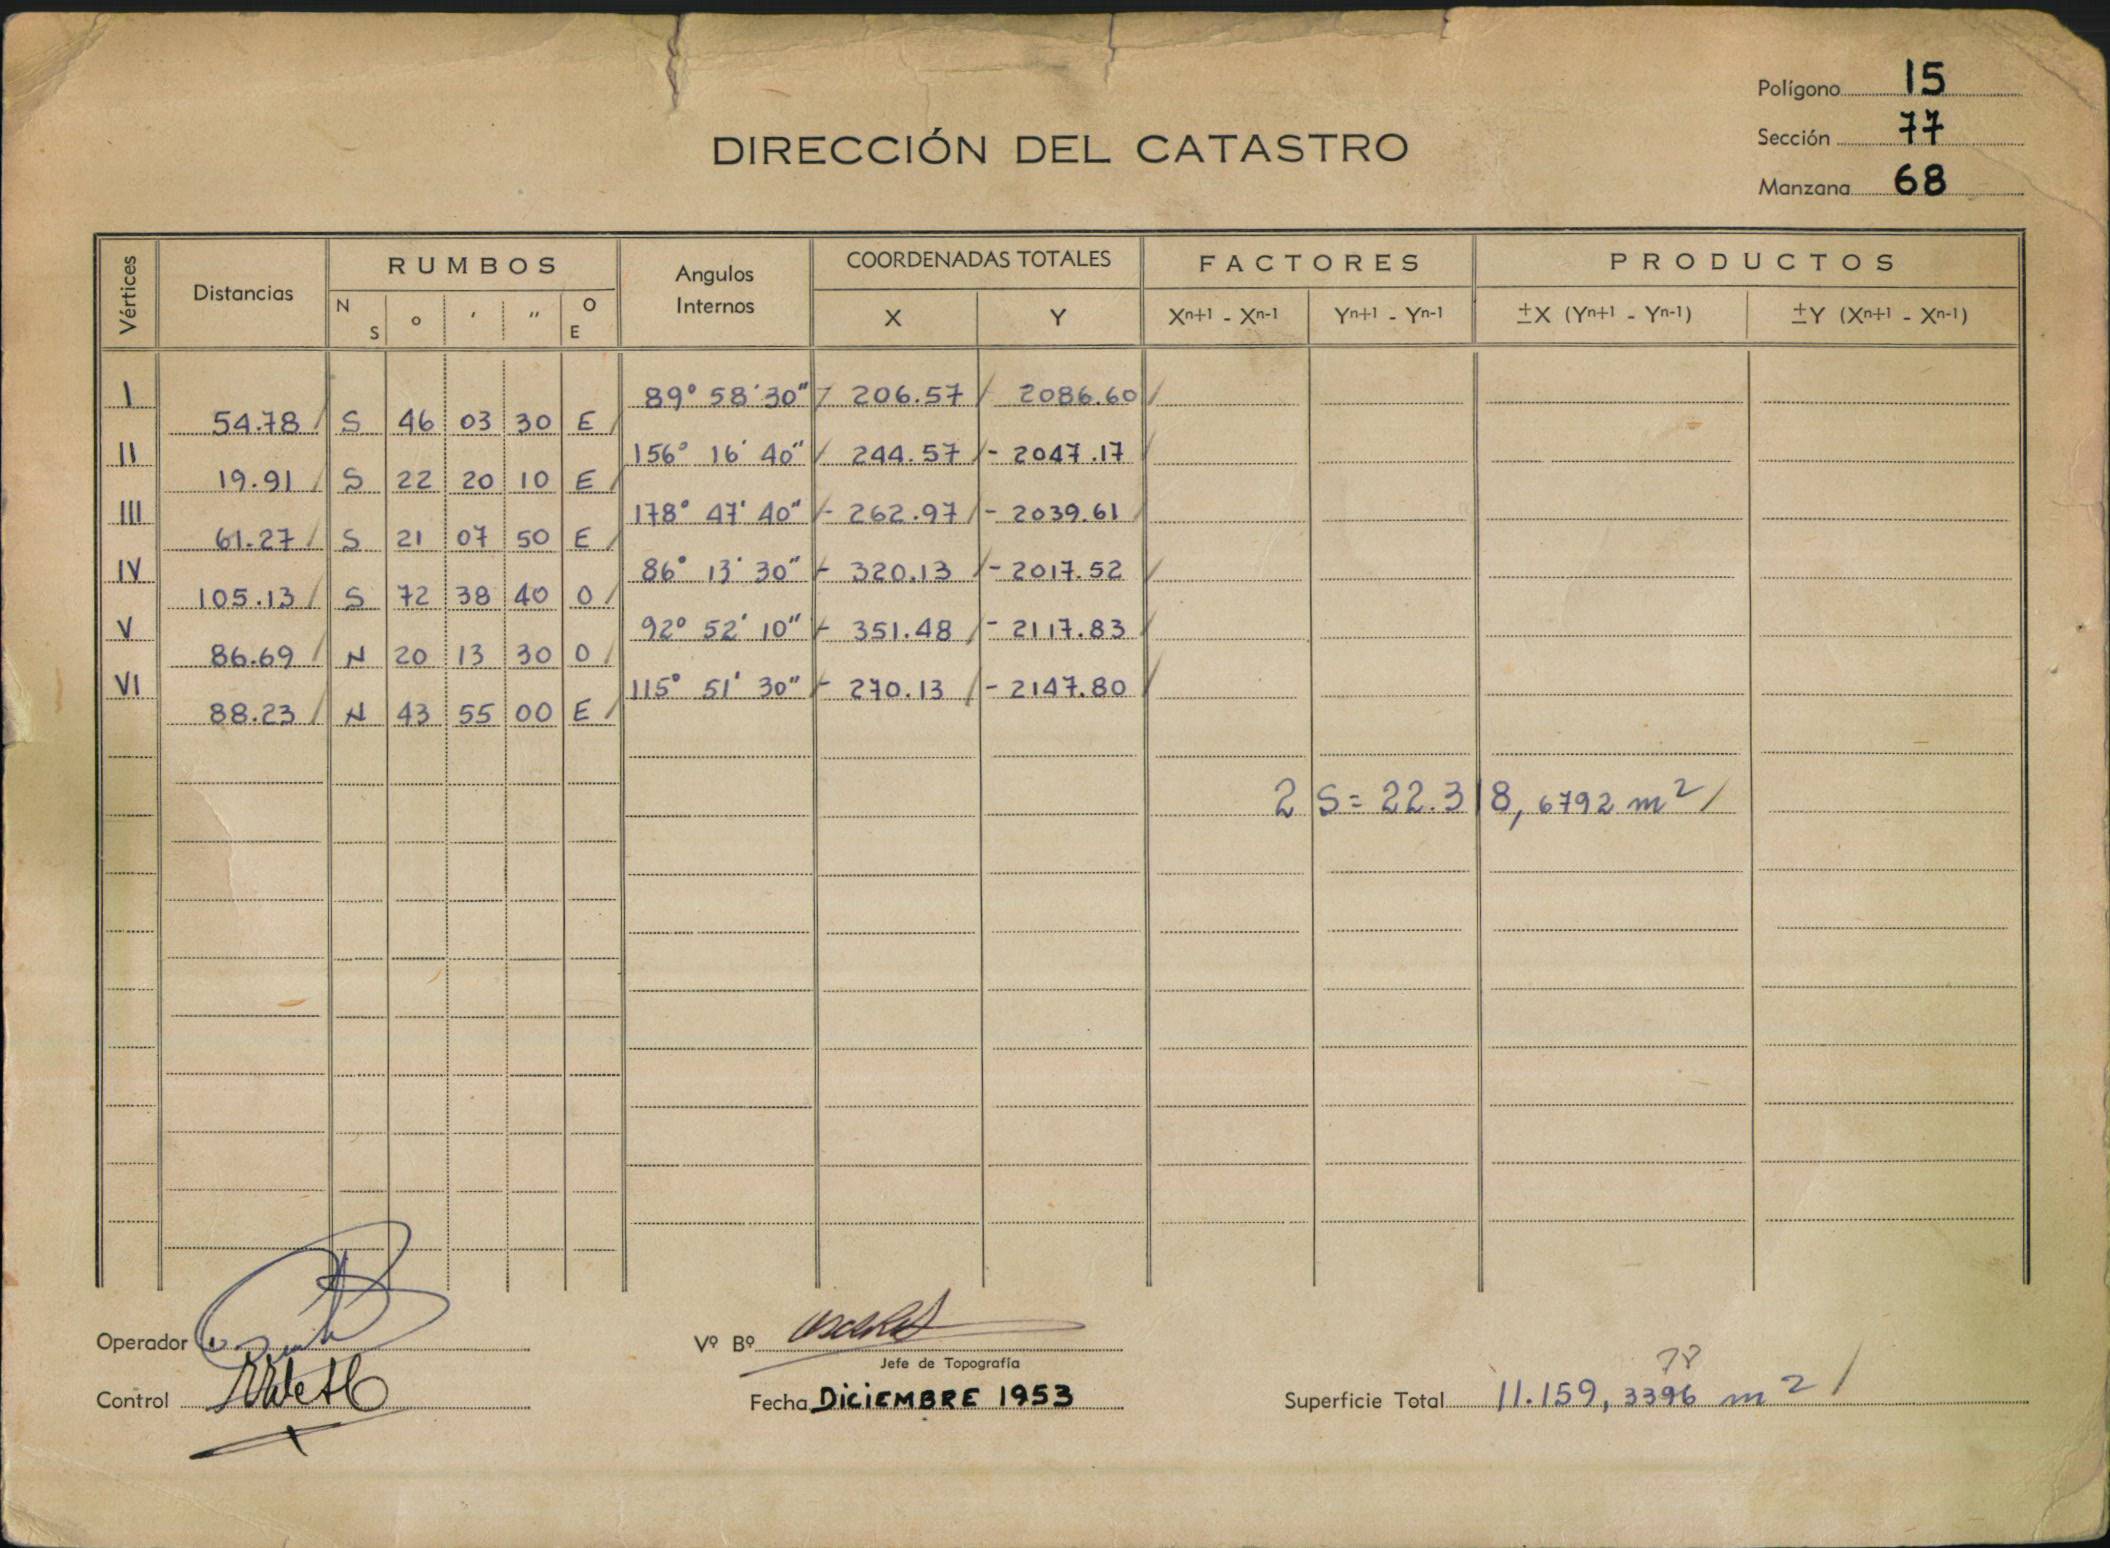 Polígono 15
Sección 77
Manzana 68
DIRECCIÓN DEL CATASTRO
Vértices Distancias RUMBOS Angulos Internos COORDENADAS TOTALES FACTORES PRODUCTOS
N S o ′ ″ O E X Y Xn+1 - Xn-1 Yn+1 - Yn-1 ±X (Yn+1 - Yn-1) ±Y (Xn+1 - Xn-1)
I 89° 58′ 30″ - 206.57 2086.60
54.78 S 46 03 30 E
II 156° 16′ 40″ - 244.57 - 2047.17
19.91 S 22 20 10 E
III 178° 47′ 40″ - 262.97 - 2039.61
61.27 S 21 07 50 E
IV 86° 13′ 30″ - 320.13 - 2017.52
105.13 S 72 38 40 O
V 92° 52′ 10″ - 351.48 - 2117.83
86.69 N 20 13 30 O
VI 115° 51′ 30″ - 270.13 - 2147.80
88.23 N 43 55 00 E
2 S = 22.318,6792 m²
Operador
Vº Bº
Jefe de Topografía
78
Control
Fecha DiCiEMBRE 1953
Superficie Total 11.159,3396 m²